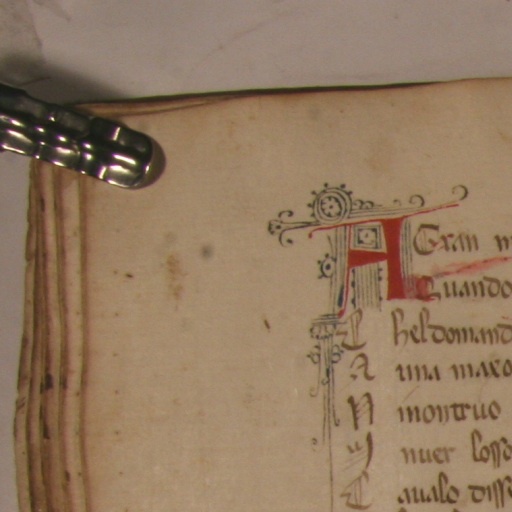 A Gran m
Quando
C heldomand
A una maxo
N montruo
nuer losso
C aualo disse